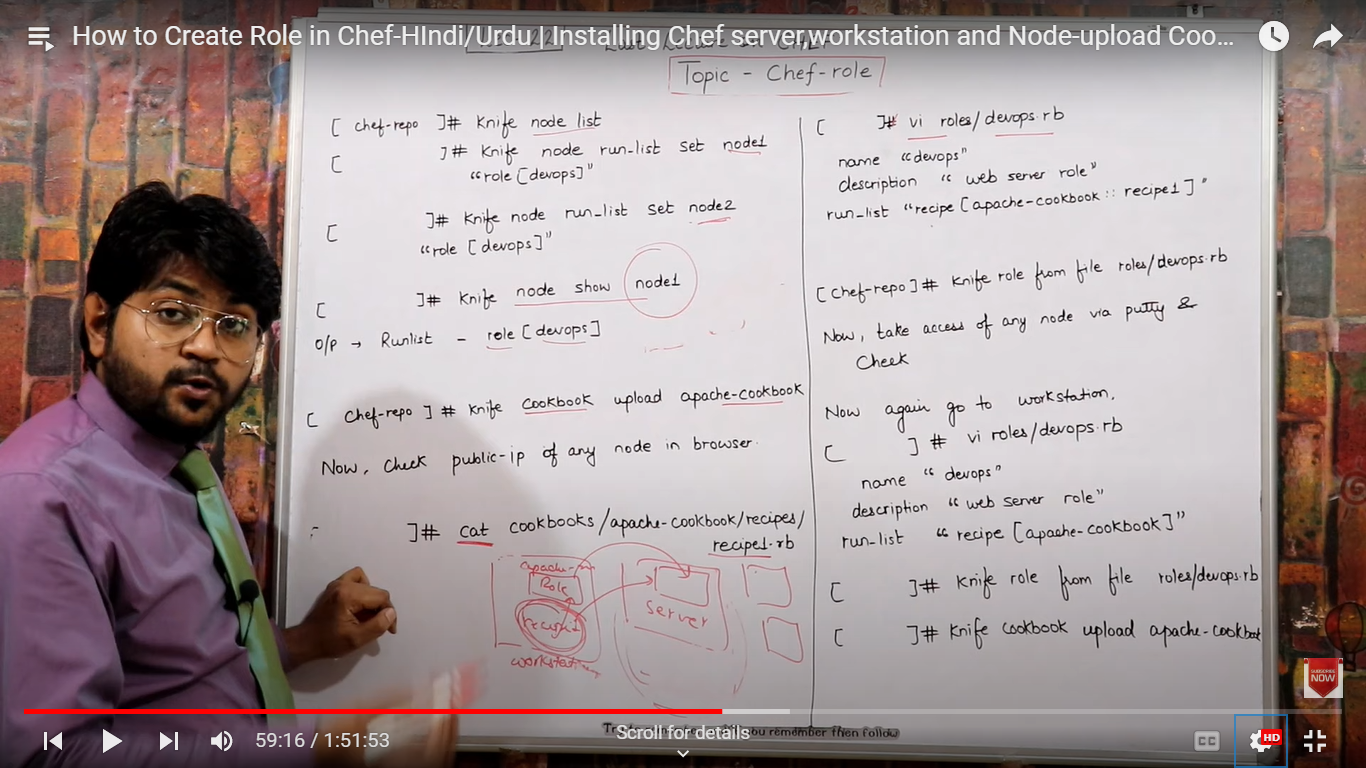 How to Create Role in Chef-HIndi/Urdu | Installing Chef server,workstation and Node-upload Coo...
Topic - Chef-role
[ chef-repo ]# Knife node list
[ ]# Knife node run-list set node1
"role [devops]"
[ ]# Knife node run-list set node2
"role [devops]"
[ ]# Knife node show node1
O/P → Runlist - role [devops]
[ Chef-repo ] # Knife Cookbook upload apache-cookbook
Now, Check public-ip of any node in browser.
[ ]# cat cookbooks/apache-cookbook/recipes/
recipe1.rb
apache-
Role
recipe1
workstation
Server
[ ]# vi roles/devops.rb
name "devops"
description " web server role"
run-list "recipe [apache-cookbook :: recipe1]"
[Chef-repo]# Knife role from file roles/devops.rb
Now, take access of any node via putty &
Check
Now again go to workstation.
[ ] # vi roles/devops.rb
name " devops"
description " web server role"
run-list " recipe [apache-cookbook]"
[ ]# Knife role from file roles/devops.rb
[ ]# Knife Cookbook upload apache-cookbook
SUBSCRIBE
NOW
you remember then follow
Scroll for details
59:16 / 1:51:53
CC
HD